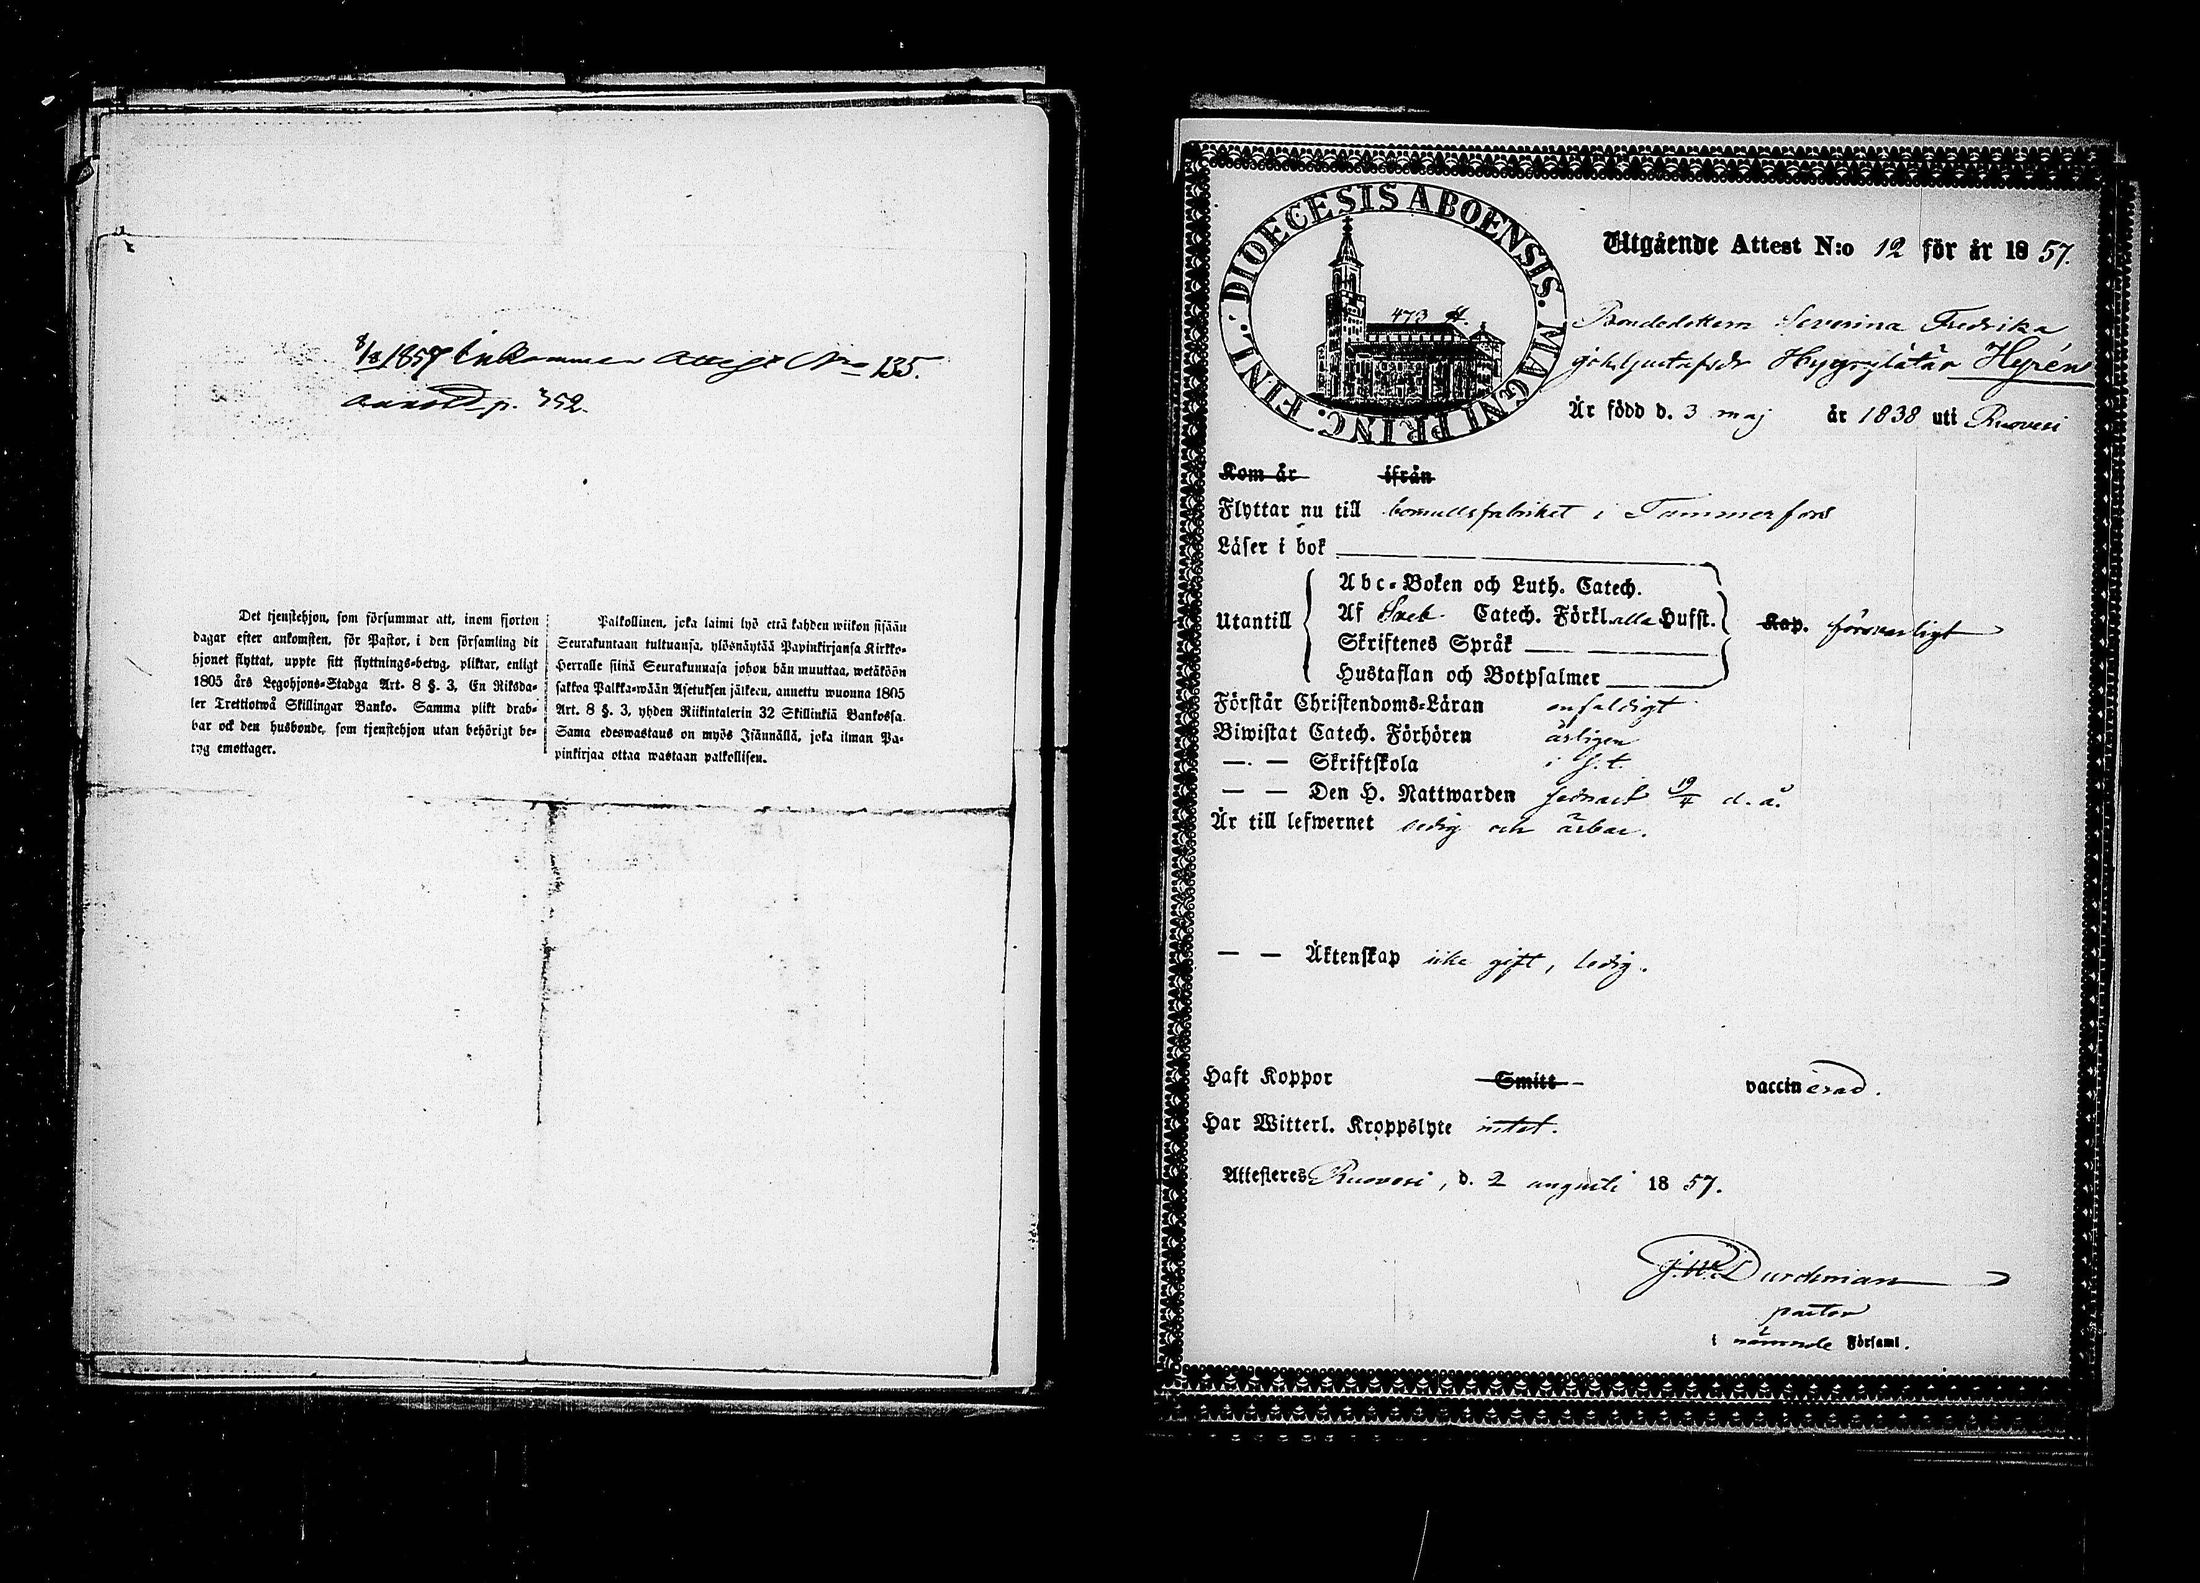 8/8 1857 Inkommen Attest No 135.
p. 352.
Det tjenstehjon, som försummar att, inom fjorton
dagar efter ankomsten, för Pastor, i den församling dit
hjonet flyttat, uppte sitt flyttnings-betyg, pliktar, enligt
1805 års Legohjons-Stadga Art. 8 §. 3, En Riksda-
ler Trettiotwå Skillingar Banko. Samma plikt drab-
bar ock den husbonde, som tjenstehjon utan behörigt be-
tyg emottager.
Palkollinen, joka laimi lyö että kahden wiikon sisään
Seurakuntaan tultuansa, ylösnäytää Papinkirjansa Kirkko-
Herralle siinä Seurakunnasa johon hän muuttaa, wetäköön
sakkoa Palkka-wään Asetuksen jälkeen, annettu wuonna 1805
Art. 8 §. 3, yhden Riikintalerin 32 Skillinkiä Bankossa.
Sama edeswastaus on myös Isännällä, joka ilman Pa-
pinkirjaa ottaa wastaan palkollisen.
DIOECESIS ABOENSIS. MAGNI PRINC. FINL.
473
Utgående Attest N:o 12 för år 1857.
Bondedottern Severina Fredrika
Hyrén
Är född d. 3 maj år 1838 uti Ruovesi
Kom år ifrån
Flyttar nu till bomullsfabriket i Tammerfors
Läser i bok
Utantill
Abc-Boken och Luth. Catech.
Af Sveb. Catech. Förkl. alla Hufst.
Skriftenes Språk
Hustaflan och Botpsalmer
Kap. försvarligt
Förstår Christendoms-Läran enfaldigt
Biwistat Catech. Förhören årligen
— — Skriftskola i s. t.
— — Den H. Nattwarden sednast 19/4 d. å.
Är till lefwernet sedig och ärbar.
— — Äktenskap icke gift, ledig.
Haft Koppor Smitt vaccinerad.
Har Witterl. Kroppslyte intet.
Attesteres Ruovesi, d. 2 augusti 1857.
J. W. Durchman
pastor
i nämnde Församl.